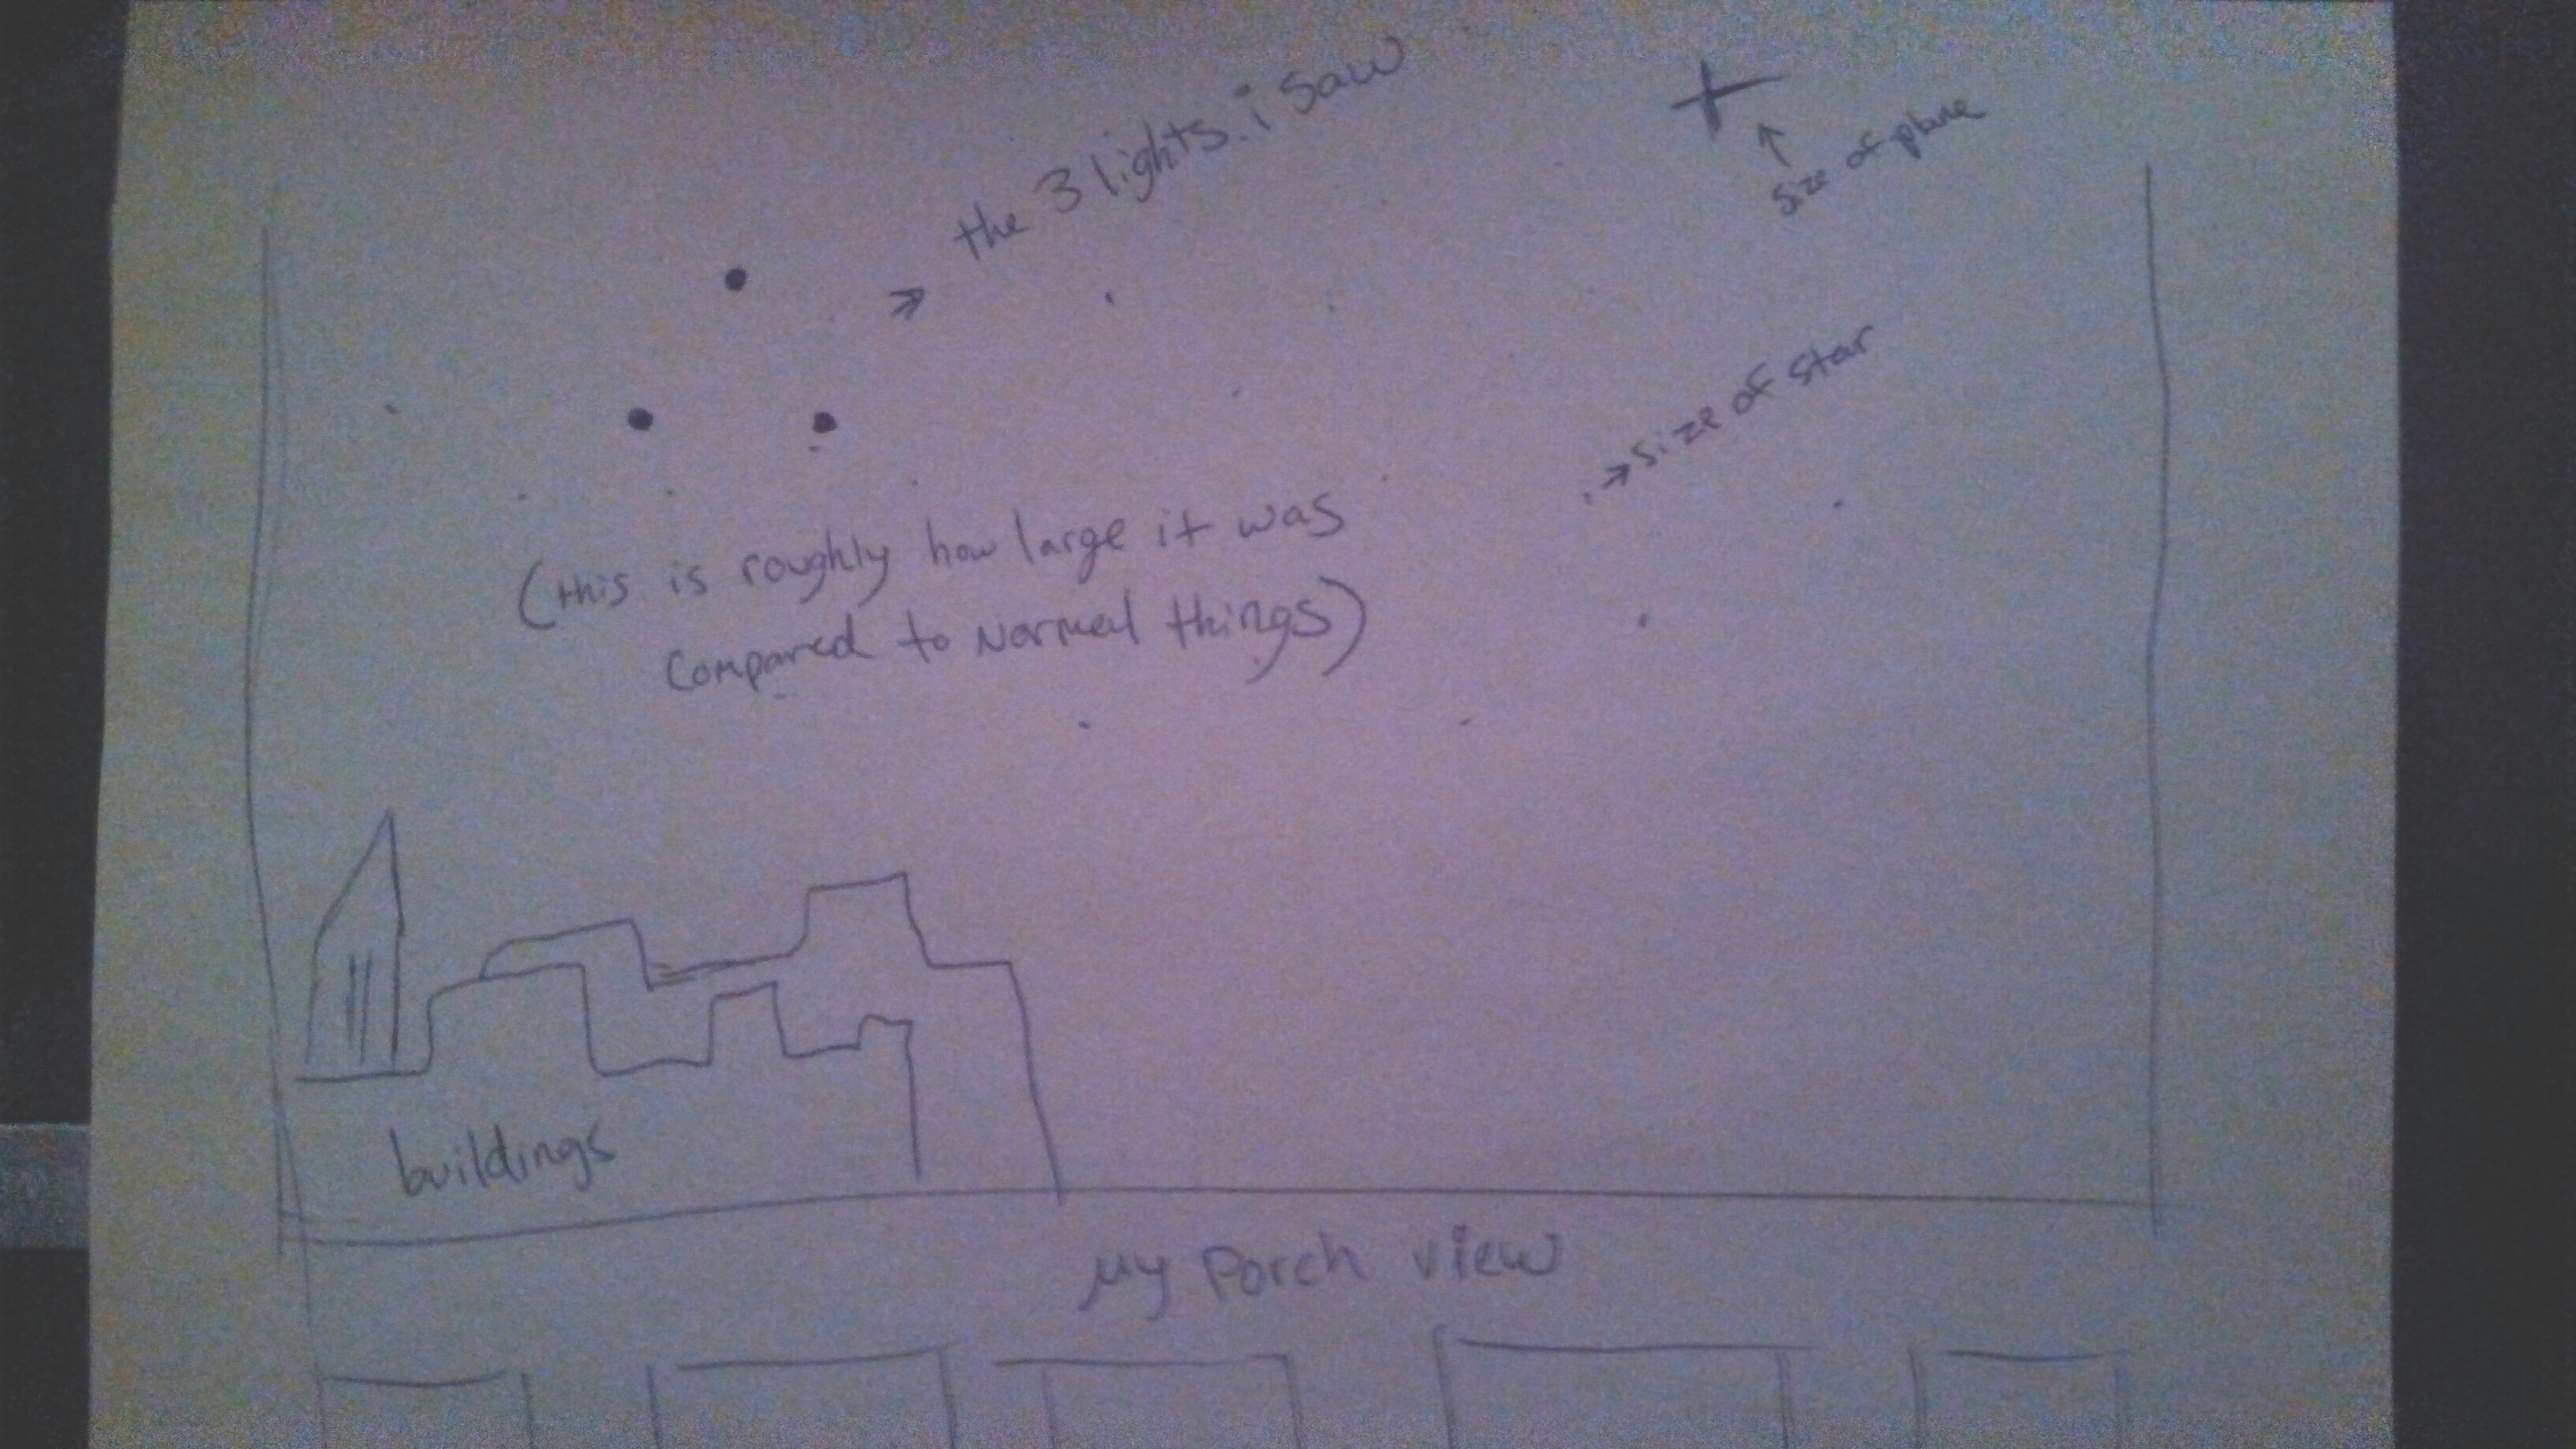 the 3 lights i saw
size of plane
size of star
(this is roughly how large it was
compared to normal things)
buildings
my porch view